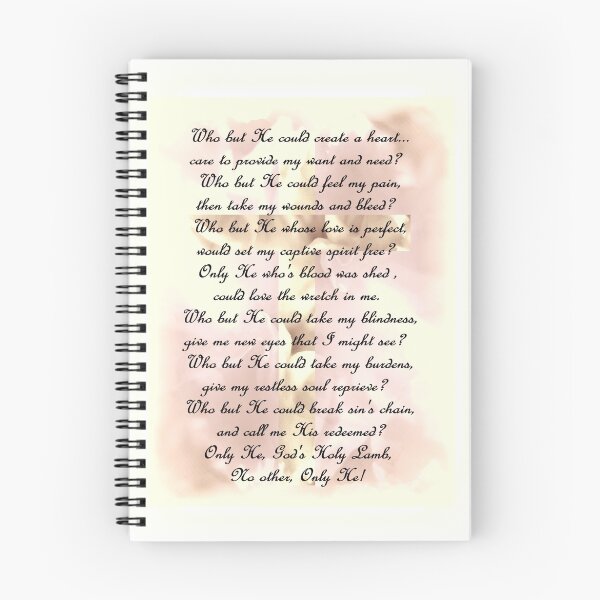 Who but He could create a heart...
care to provide my want and need?
Who but He could feel my pain,
then take my wounds and bleed?
Who but He whose love is perfect,
would set my captive spirit free?
Only He who's blood was shed ,
could love the wretch in me.
Who but He could take my blindness,
give me new eyes that I might see?
Who but He could take my burdens,
give my restless soul reprieve?
Who but He could break sin's chain,
and call me His redeemed?
Only He, God's Holy Lamb,
No other, Only He!